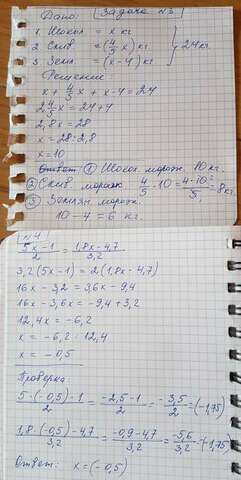 Дано: Задача №3
1 Шокол = x кг
2 Слив = (4/5 x) кг } 24 кг.
3 Земл = (x-4) кг
Решение
x + 4/5 x + x-4 = 24
2 4/5 x = 24+4
2,8x = 28
x = 28:2,8
x = 10
Ответ: ① Шокол морож. 10кг.
② Слив. морож 4/5 · 10 = 4·10/5 = 8кг.
③ Землян. морож.
10-4 = 6 кг.
№4
5x-1/2 = 1,8x-4,7/3,2
3,2(5x-1) = 2(1,8x-4,7)
16x-3,2 = 3,6x-9,4
16x-3,6x = -9,4+3,2
12,4x = -6,2
x = -6,2 : 12,4
x = -0,5
Проверка
5·(-0,5)-1/2 = -2,5-1/2 = -3,5/2 = (-1,75)
1,8·(-0,5)-4,7/3,2 = -0,9-4,7/3,2 = -5,6/3,2 = (-1,75)
Ответ: x = (-0,5)